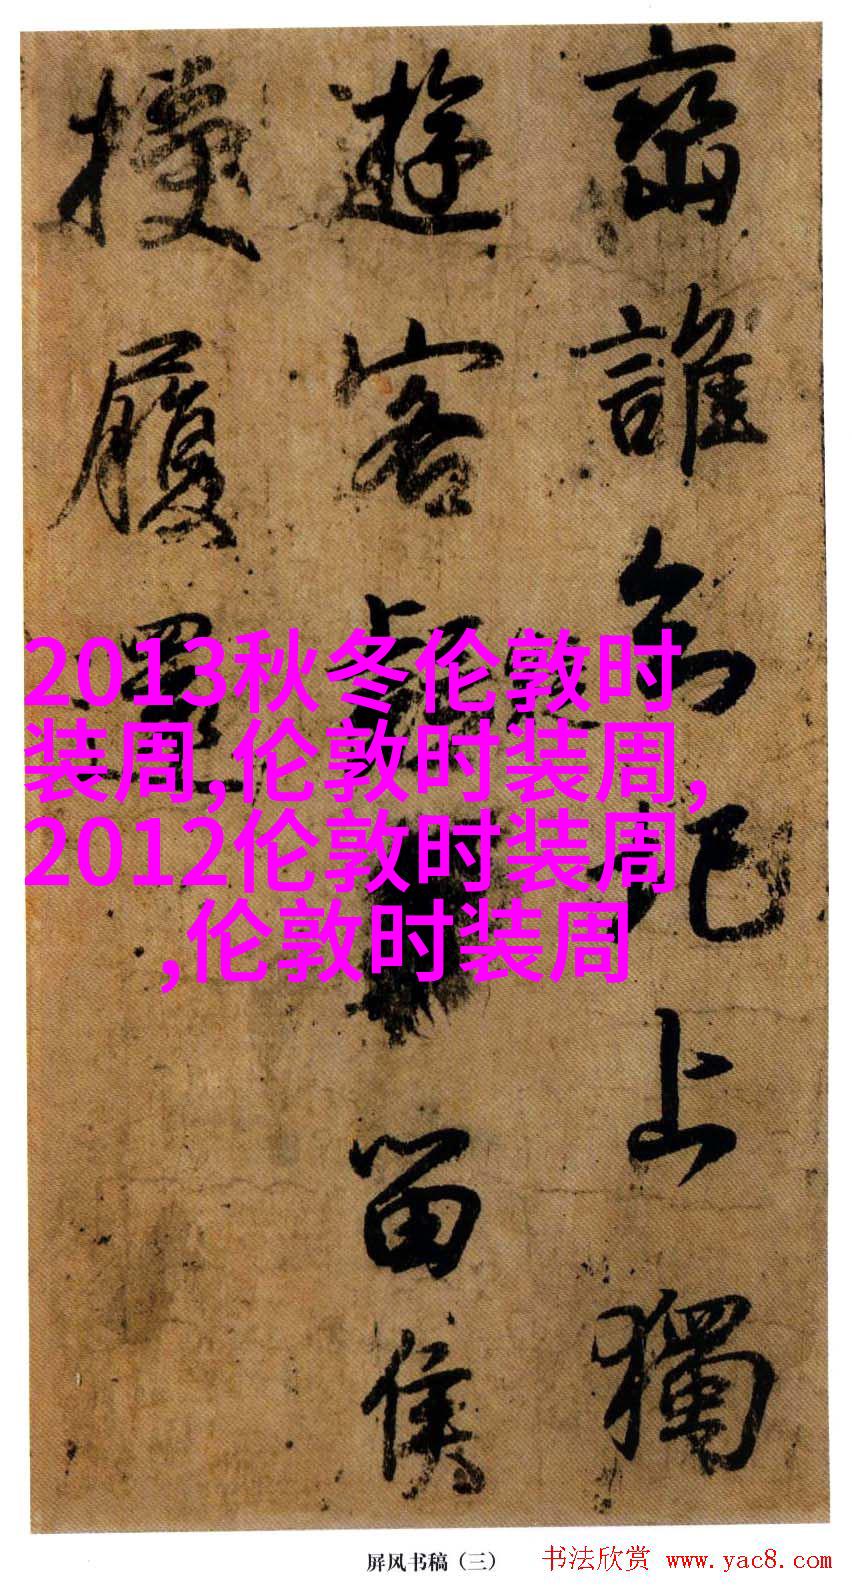 峦誰念圯上獨
遊客留侯
履還
2013秋冬伦敦时
装周,伦敦时装周,
2012伦敦时装周
,伦敦时装周
屏风书稿(三)
书法欣赏 www.yac8.com